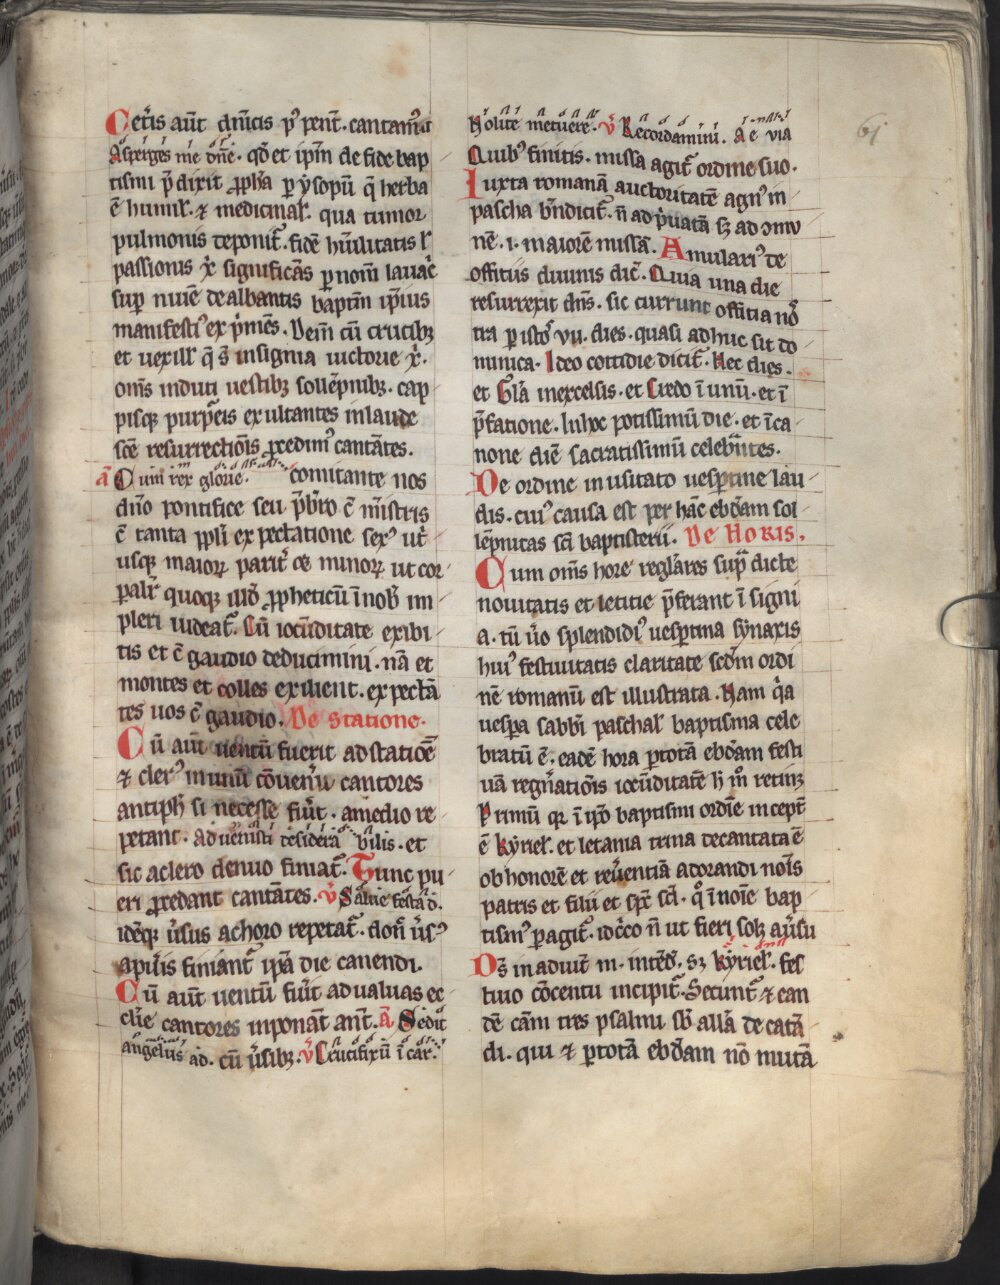 Cet̾is aut̄ dn̄icis pꝰ pent̄. cantam᷒
Asperges me dn̄e. qd̄ et ip̄m de fide bap
tismi p̄dixit ꝓph̄a per ysopū q̄ herba
ē humil̾. ⁊ medicinal̾. qua tumor
pulmonis deponit᷑. fidē hūilitatis ł
passionis xp̄i significās p̱ nom̄ lauac̾
sup̱ niuē dealbantis baptm̄ ip̄ius
manifestꝰ ex p̾mēs. Deīn cū crucibꝫ
et uexill̾ q̄ s̄t insignia uictorie xp̄i.
om̄s induti uestibꝫ sollēpnibꝫ. cap
pisqꝫ purp̾eis exultantes in laude
scē resurrectiōis ꝓcedimꝰ cantātes.
a᷑ Cum rex glorie. comitante nos
dn̄o pontifice seu p̄sb̾ro c̄ mīstris
c̄ tanta ppl̾i expectatione sexꝰ ut̾
usqꝫ maioꝝ parit̾ ⁊ minoꝝ ut cor
p̱alr̾ quoqꝫ illud ꝓpheticū ī nob̾ im
pleri uideat᷑. Cū iocūditate exibi
tis et c̄ gaudio deducimini. nā et
montes et colles exilient. expectā
tes uos c̄ gaudio. De statione.
Cū aut̄ uentū fuerit ad statiōē
⁊ clerꝰ in unū cōuen̾it cantores
antiph̾ si necesse fiūt. a medio re
petant. Aduenisti desidera bilis. et
sic a clero denuo finiat᷑. Tunc pu
eri ꝓcedant cantātes. v̾ Salue festa d.
idēqꝫ ūsus a choro repetat᷑. don̄ ūsꝰ
aprilis finiant᷑ ip̄a die canendi.
Cū aut̄ uentū fūit ad ualuas ec
cl̾ie cantores inponāt ant̄. a᷑ Sedit
angelus ad. cū ūsibꝫ. v̾ Crucifixū ī car̾.
Nolite metuere. v̾ Recordamini. A e uia
Quibꝰ finitis. missa agit᷑ ordine suo.
Iuxta romanā auctoritatē agnꝰ in
pascha bn̄dicit᷑. n̄ ad p̾uatā sꝫ ad ꝯmu
nē. i. maiorē missā. Amularꝰ de
offitiis diuinis dic̄. Quia una die
resurrexit dn̄s. sic currunt offitia nō
tra p̱ istos vii. dies. quasi adhuc sit do
minica. Ideo cottidie dicit᷑. Hec dies.
et Gl̾a in excelsis. et Credo ī unū. et ī
p̄fatione. In hoc potissimū die. et ī ca
none diē sacratissimū celebrātes.
De ordine inusitato uesp̱tine lau
dis. cuiꝰ causa est per hāc ebd̾am sol
lēpnitas sc̄i baptisterii. De Horis.
Cum om̄s hore reglāres sup̱ dicte
nouitatis et letitie p̄ferant ī signi
a. tū ūo splendidiꝰ uesp̱tina synaxis
huiꝰ festiuitatis claritate secd̄m ordi
nē romanū est illustrata. Nam q̾a
uesp̱a sabb̾i paschal̾ baptisma cele
bratū ē. eadē hora p̱ totā ebd̾am festi
uā regn̄atiōis iocūditatē h̾ m̊ retinꝫ
Primū q̾r ī ip̄o baptismi ordīe incept̄
ē kyriel̾. et letania trina decantata ē
ob honorē et reūentiā adorandi noīs
patris et filii et sp̄c sc̄i. qͦ ī noīe bap
tismꝰ p̱agit᷑. idcͦco n̄ ut fieri solꝫ a ūsu
Dꝰ in adiut̄ m. intēd̄. sꝫ kyriel̾. fes
tiuo cōcentu incipit᷑. Secunt᷑ ⁊ ean
dē cām tres psalmi sb̄ all̾a decatā
di. qui ⁊ p̱ totā ebd̾am nō mutā
61